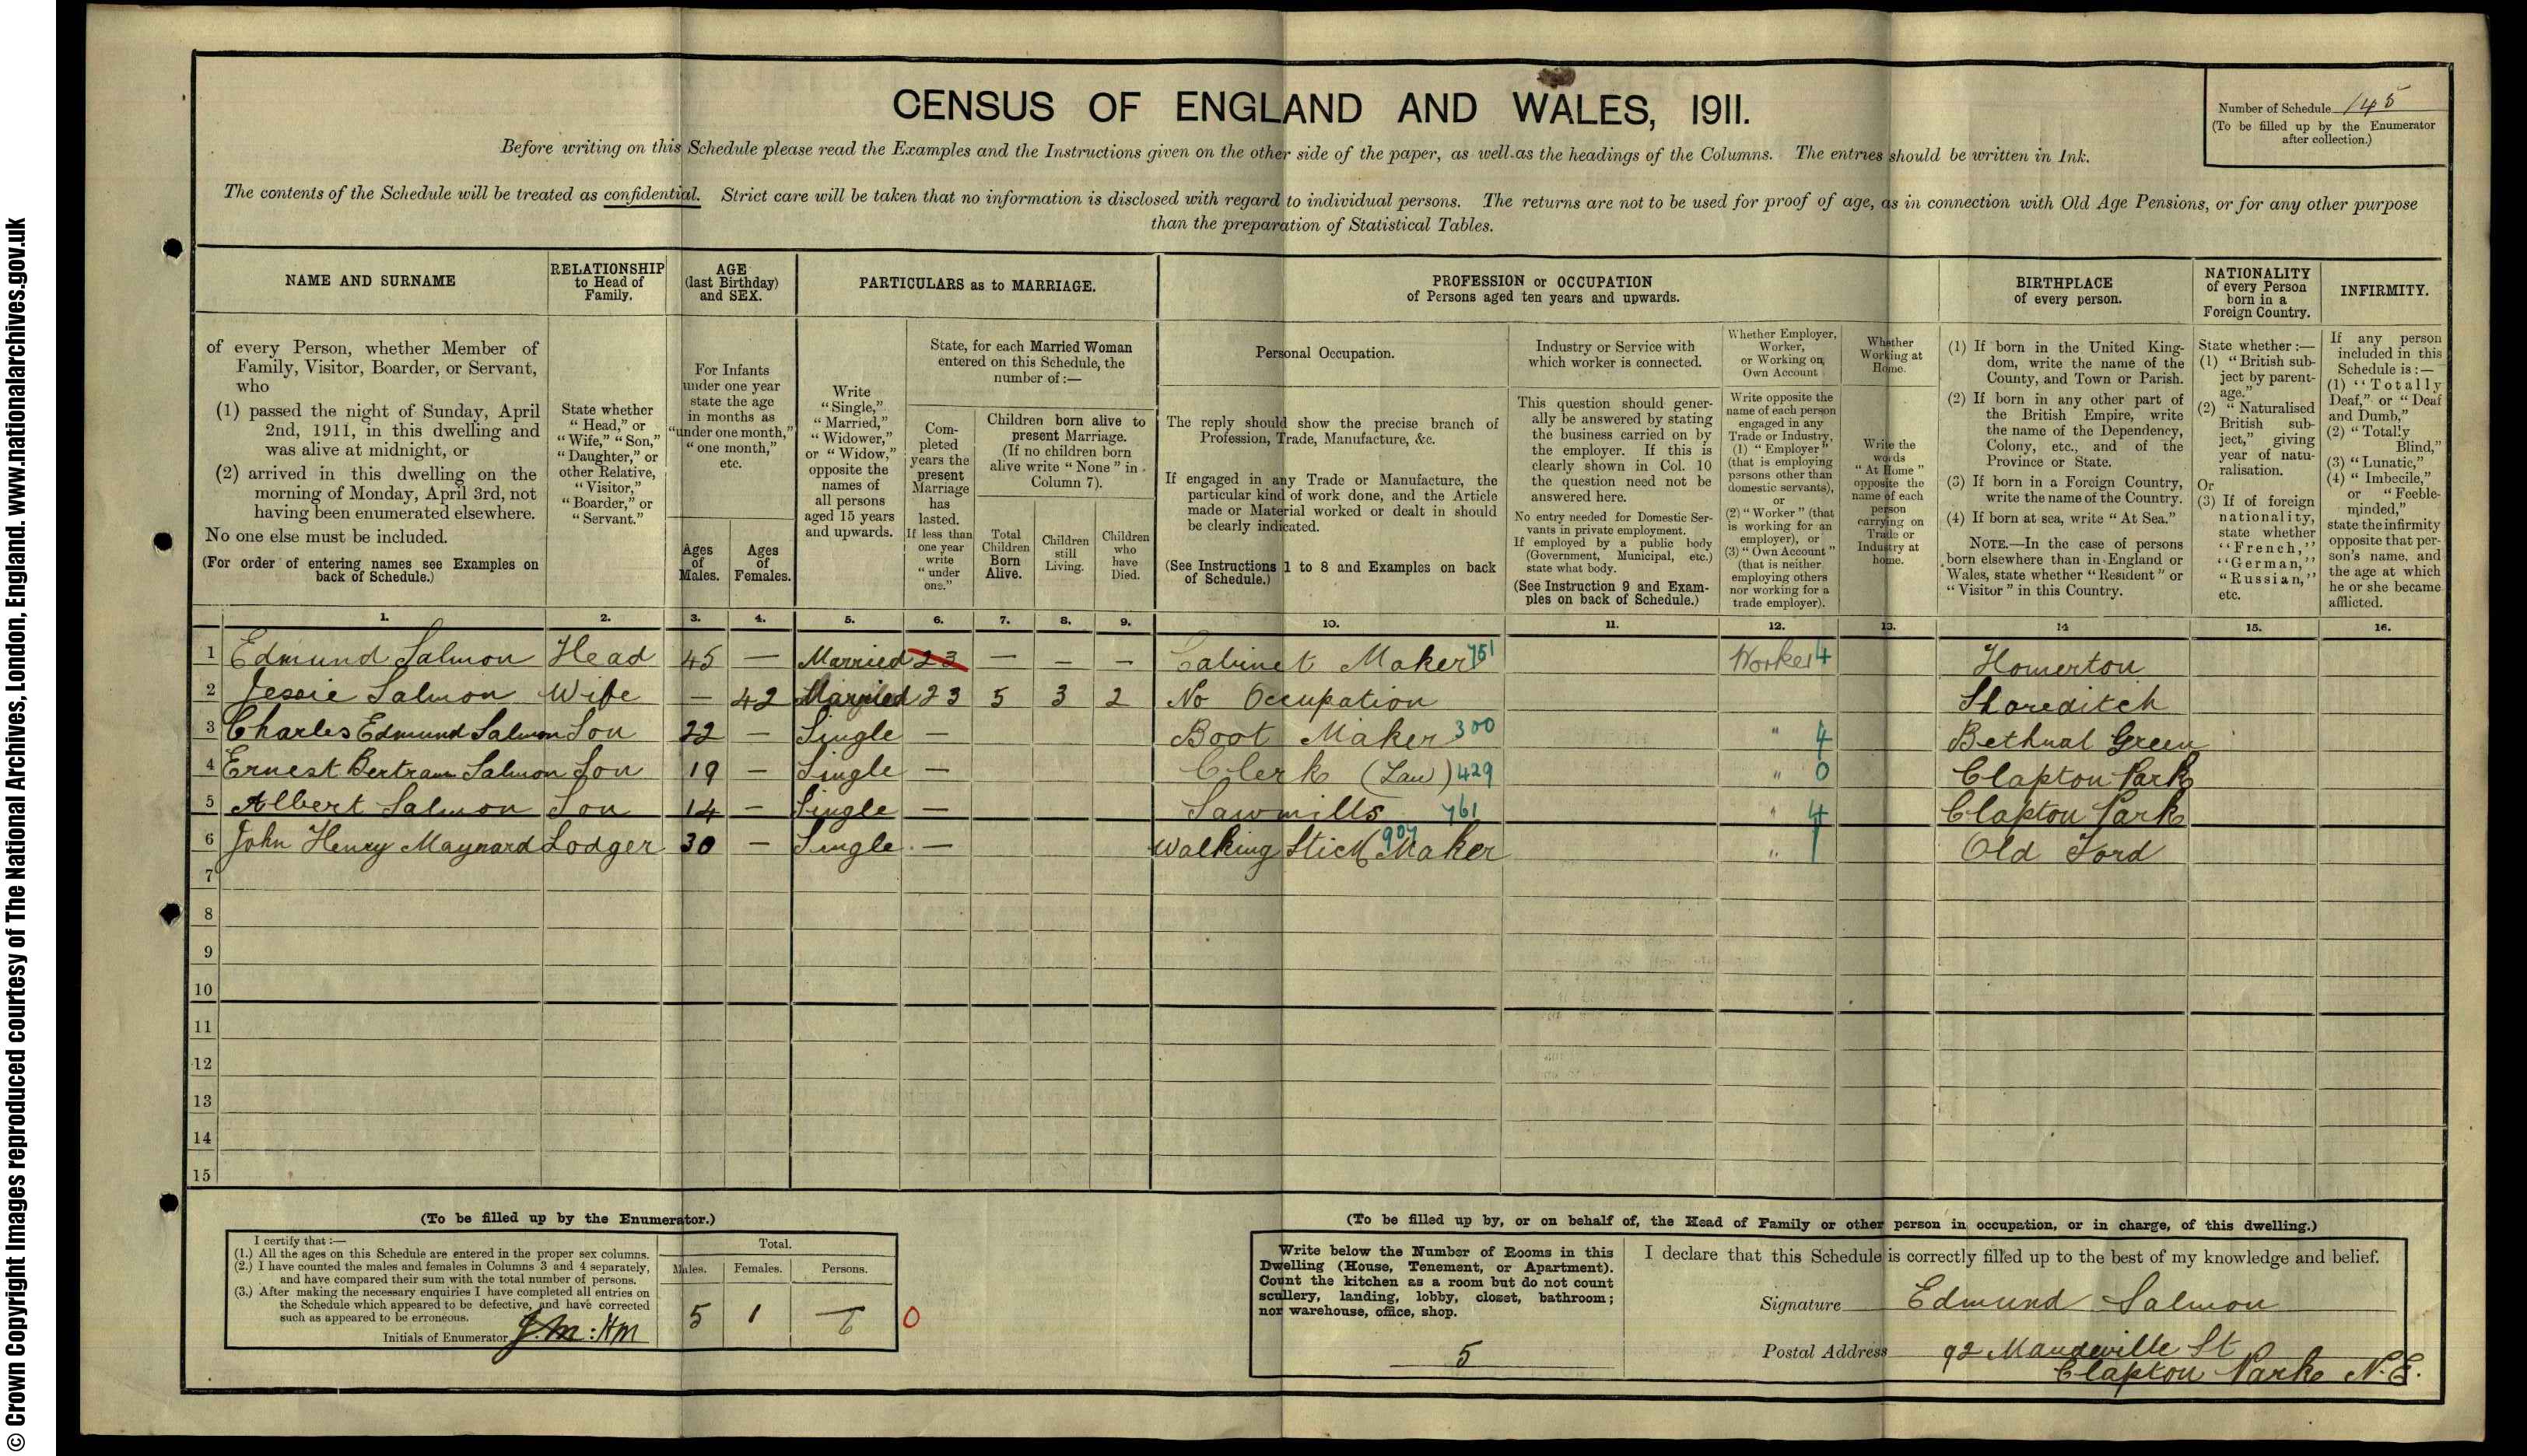 © Crown Copyright Images reproduced courtesy of The National Archives, London, England. www.nationalarchives.gov.uk
CENSUS OF ENGLAND AND WALES, 1911.
Number of Schedule 145
(To be filled up by the Enumerator
after collection.)
Before writing on this Schedule please read the Examples and the Instructions given on the other side of the paper, as well as the headings of the Columns. The entries should be written in Ink.
The contents of the Schedule will be treated as confidential. Strict care will be taken that no information is disclosed with regard to individual persons. The returns are not to be used for proof of age, as in connection with Old Age Pensions, or for any other purpose
than the preparation of Statistical Tables.
NAME AND SURNAME
of every Person, whether Member of
Family, Visitor, Boarder, or Servant,
who
(1) passed the night of Sunday, April
2nd, 1911, in this dwelling and
was alive at midnight, or
(2) arrived in this dwelling on the
morning of Monday, April 3rd, not
having been enumerated elsewhere.
No one else must be included.
(For order of entering names see Examples on
back of Schedule.)
RELATIONSHIP
to Head of
Family.
State whether
"Head," or
"Wife," "Son,"
"Daughter," or
other Relative,
"Visitor,"
"Boarder," or
"Servant."
AGE
(last Birthday)
and SEX.
For Infants
under one year
state the age
in months as
"under one month,"
"one month,"
etc.
Ages
of
Males.
Ages
of
Females.
PARTICULARS as to MARRIAGE.
Write
"Single,"
"Married,"
"Widower,"
or "Widow,"
opposite the
names of
all persons
aged 15 years
and upwards.
State, for each Married Woman
entered on this Schedule, the
number of :—
Com-
pleted
years the
present
Marriage
has
lasted.
If less than
one year
write
"under
one."
Children born alive to
present Marriage.
(If no children born
alive write "None" in
Column 7).
Total
Children
Born
Alive.
Children
still
Living.
Children
who
have
Died.
PROFESSION or OCCUPATION
of Persons aged ten years and upwards.
Personal Occupation.
The reply should show the precise branch of
Profession, Trade, Manufacture, &c.
If engaged in any Trade or Manufacture, the
particular kind of work done, and the Article
made or Material worked or dealt in should
be clearly indicated.
(See Instructions 1 to 8 and Examples on back
of Schedule.)
Industry or Service with
which worker is connected.
This question should gener-
ally be answered by stating
the business carried on by
the employer. If this is
clearly shown in Col. 10
the question need not be
answered here.
No entry needed for Domestic Ser-
vants in private employment.
If employed by a public body
(Government, Municipal, etc.)
state what body.
(See Instruction 9 and Exam-
ples on back of Schedule.)
Whether Employer,
Worker,
or Working on
Own Account
Write opposite the
name of each person
engaged in any
Trade or Industry,
(1) "Employer"
(that is employing
persons other than
domestic servants),
or
(2) "Worker" (that
is working for an
employer), or
(3) "Own Account"
(that is neither
employing others
nor working for a
trade employer).
Whether
Working at
Home.
Write the
words
"At Home"
opposite the
name of each
person
carrying on
Trade or
Industry at
home.
BIRTHPLACE
of every person.
(1) If born in the United King-
dom, write the name of the
County, and Town or Parish.
(2) If born in any other part of
the British Empire, write
the name of the Dependency,
Colony, etc., and of the
Province or State.
(3) If born in a Foreign Country,
write the name of the Country.
(4) If born at sea, write "At Sea."
NOTE.—In the case of persons
born elsewhere than in England or
Wales, state whether "Resident" or
"Visitor" in this Country.
NATIONALITY
of every Person
born in a
Foreign Country.
State whether :—
(1) "British sub-
ject by parent-
age."
(2) "Naturalised
British sub-
ject," giving
year of natu-
ralisation.
Or
(3) If of foreign
nationality,
state whether
"French,"
"German,"
"Russian,"
etc.
INFIRMITY.
If any person
included in this
Schedule is :—
(1) "Totally
Deaf," or "Deaf
and Dumb,"
(2) "Totally
Blind,"
(3) "Lunatic,"
(4) "Imbecile,"
or "Feeble-
minded,"
state the infirmity
opposite that per-
son's name, and
the age at which
he or she became
afflicted.
1. 2. 3. 4. 5. 6. 7. 8. 9. 10. 11. 12. 13. 14 15. 16.
1 Edmund Salmon Head 45 — Married 23 — — — Cabinet Maker 751 Worker 4 Homerton
2 Jessie Salmon Wife — 42 Married 23 5 3 2 No Occupation Shoreditch
3 Charles Edmund Salmon Son 22 — Single — Boot Maker 300 " 4 Bethnal Green
4 Ernest Bertram Salmon Son 19 — Single — Clerk (Law) 429 " 0 Clapton Park
5 Albert Salmon Son 14 — Single — Sawmills 761 " 4 Clapton Park
6 John Henry Maynard Lodger 30 — Single — Walking Stick Maker 907 " 1 Old Ford
7
8
9
10
11
12
13
14
15
(To be filled up by the Enumerator.)
I certify that :—
(1.) All the ages on this Schedule are entered in the proper sex columns.
(2.) I have counted the males and females in Columns 3 and 4 separately,
and have compared their sum with the total number of persons.
(3.) After making the necessary enquiries I have completed all entries on
the Schedule which appeared to be defective, and have corrected
such as appeared to be erroneous.
Initials of Enumerator J.M : HM
Total.
Males. Females. Persons.
5 1 6 0
(To be filled up by, or on behalf of, the Head of Family or other person in occupation, or in charge, of this dwelling.)
Write below the Number of Rooms in this
Dwelling (House, Tenement, or Apartment).
Count the kitchen as a room but do not count
scullery, landing, lobby, closet, bathroom;
nor warehouse, office, shop.
5
I declare that this Schedule is correctly filled up to the best of my knowledge and belief.
Signature Edmund Salmon
Postal Address 92 Mandeville St
Clapton Park N.E.